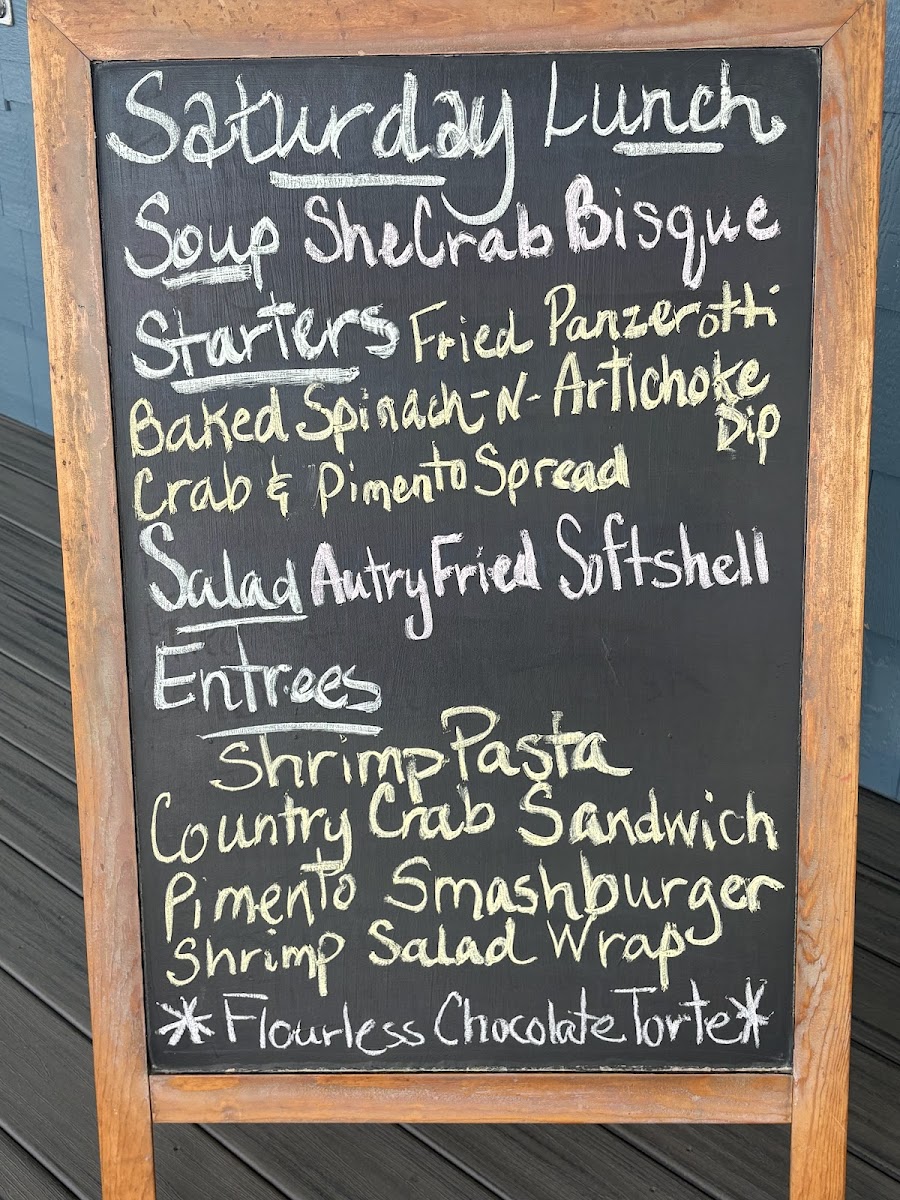 Saturday Lunch
Soup SheCrab Bisque
Starters Fried Panzerotti
Baked Spinach-N-Artichoke
Dip
Crab & Pimento Spread
Salad Autry Fried Softshell
Entrees
Shrimp Pasta
Country Crab Sandwich
Pimento Smashburger
Shrimp Salad Wrap
*Flourless Chocolate Torte*